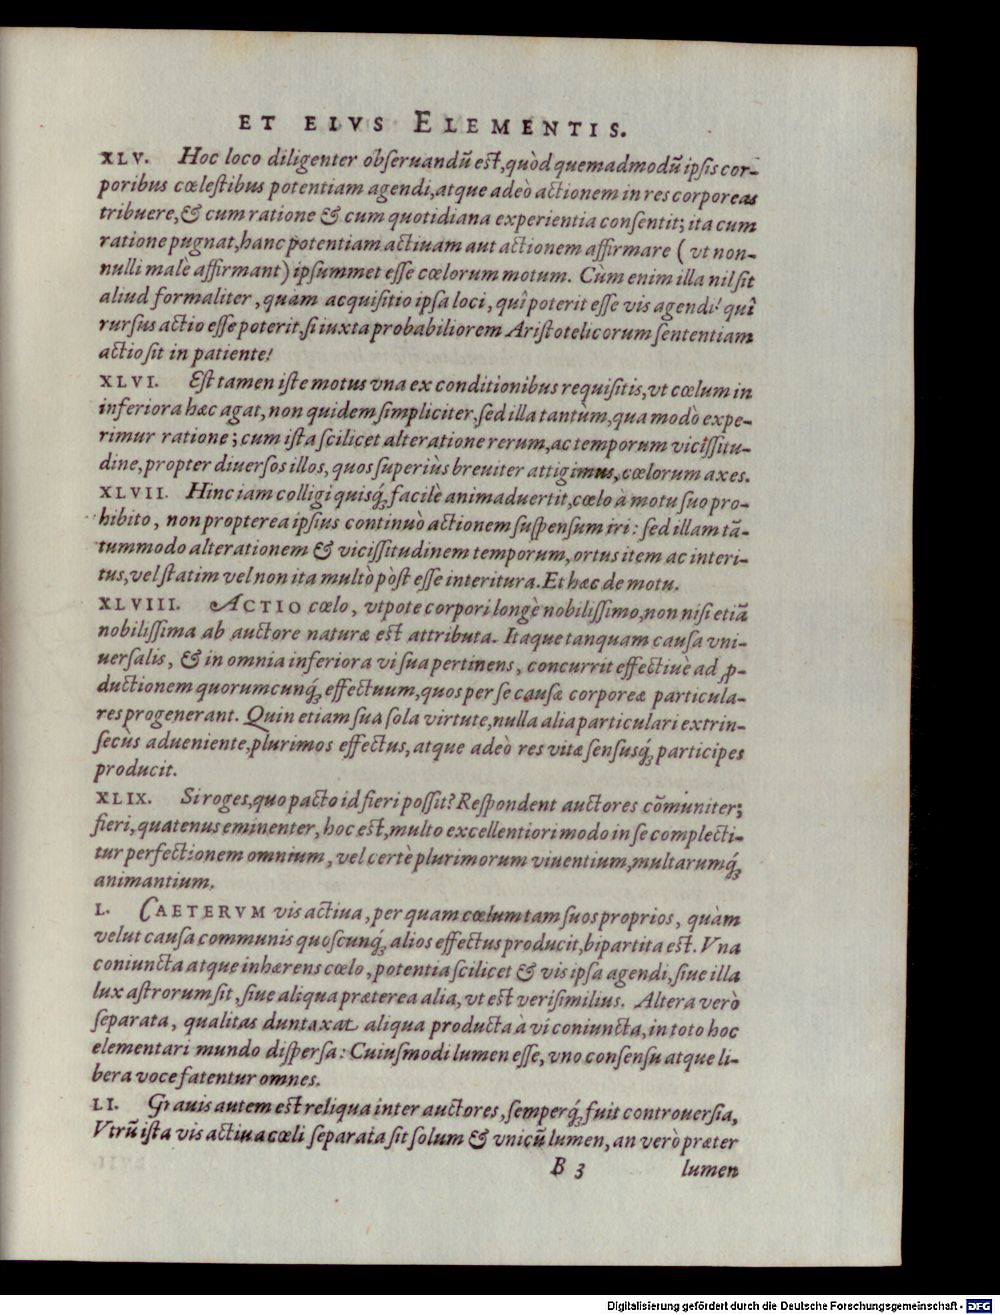 ET EIVS ELEMENTIS.
XLV. Hoc loco diligenter obſeruandũ eſt, quòd quemadmodũ ipſis cor-
poribus cœleſtibus potentiam agendi, atque adeò actionem in res corporeas
tribuere, & cum ratione & cum quotidiana experientia conſentit; ita cum
ratione pugnat, hanc potentiam actiuam aut actionem affirmare ( vt non-
nulli malè affirmant) ipſummet eſſe cœlorum motum. Cùm enim illa nil ſit
aliud formaliter, quam acquiſitio ipſa loci, quî poterit eſſe vis agendi? quî
rurſus actio eſſe poterit, ſi iuxta probabiliorem Ariſtotelicorum ſententiam
actio ſit in patiente?
XLVI. Eſt tamen iſte motus vna ex conditionibus requiſitis, vt cœlum in
inferiora hæc agat, non quidem ſimpliciter, ſed illa tantùm, qua modò expe-
rimur ratione; cum iſta ſcilicet alteratione rerum, ac temporum viciſſitu-
dine, propter diuerſos illos, quos ſuperiùs breuiter attigimus, cœlorum axes.
XLVII. Hinc iam colligi quisq́; facilè animaduertit, cœlo à motu ſuo pro-
hibito, non propterea ipſius continuò actionem ſuſpenſum iri: ſed illam tã-
tummodo alterationem & viciſſitudinem temporum, ortus item ac interi-
tus, vel ſtatim vel non ita multò pòſt eſſe interitura. Et hæc de motu.
XLVIII. ACTIO cœlo, vtpote corpori longè nobiliſſimo, non niſi etiã
nobiliſſima ab auctore naturæ eſt attributa. Itaque tanquam cauſa vni-
uerſalis, & in omnia inferiora vi ſua pertinens, concurrit effectiuè ad ꝓ-
ductionem quorumcunq́; effectuum, quos per ſe cauſæ corporeæ particula-
res progenerant. Quin etiam ſua ſola virtute, nulla alia particulari extrin-
ſecùs adueniente, plurimos effectus, atque adeò res vitæ ſenſusq́; participes
producit.
XLIX. Si roges, quo pacto id fieri poſſit? Reſpondent auctores cõmuniter;
fieri, quatenus eminenter, hoc eſt, multo excellentiori modo in ſe complecti-
tur perfectionem omnium, vel certè plurimorum viuentium, multarumq́;
animantium.
L. CAETERVM vis actiua, per quam cœlum tam ſuos proprios, quàm
velut cauſa communis quoſcunq́; alios effectus producit, bipartita eſt. Vna
coniuncta atque inhærens cœlo, potentia ſcilicet & vis ipſa agendi, ſiue illa
lux aſtrorum ſit, ſiue aliqua præterea alia, vt eſt veriſimilius. Altera verò
ſeparata, qualitas duntaxat aliqua producta à vi coniuncta, in toto hoc
elementari mundo diſperſa: Cuiuſmodi lumen eſſe, vno conſenſu atque li-
bera voce fatentur omnes.
LI. Grauis autem eſt reliqua inter auctores, ſemperq́; fuit controuerſia,
Vtrũ iſta vis actiua cœli ſeparata ſit ſolum & vnicũ lumen, an verò præter
B 3 lumen
Digitalisierung gefördert durch die Deutsche Forschungsgemeinschaft - DFG